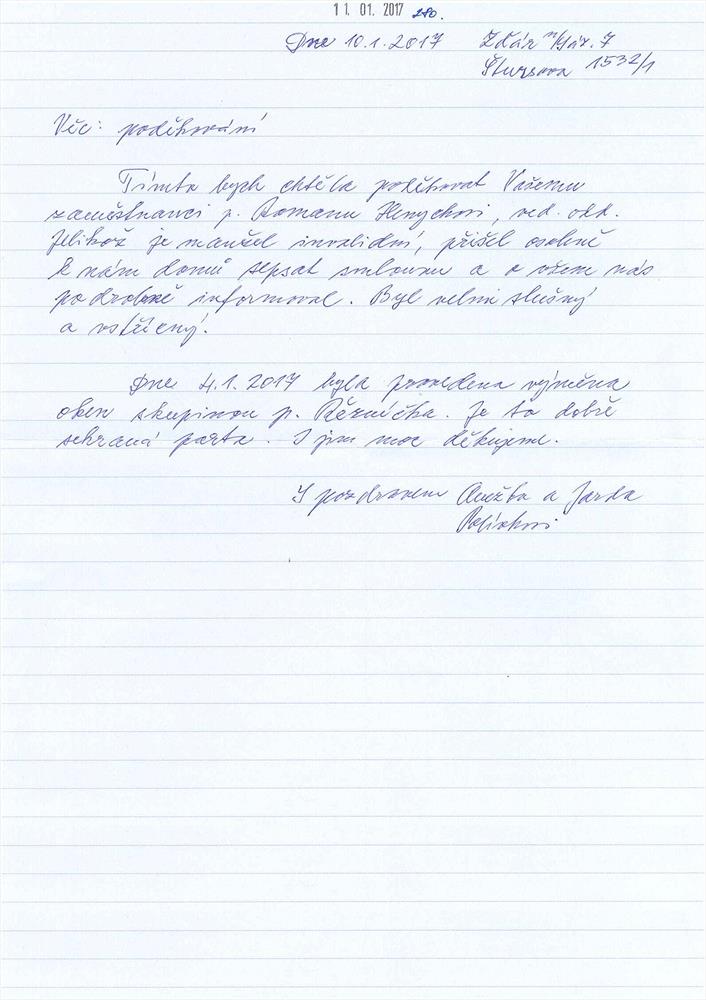 11. 01. 2017 280.
Dne 10.1.2017 Zďár n/Sáz. 7
Štursova 1532/1
Věc: poděkování
Tímto bych chtěla poděkovat Vašemu
zaměstnanci p. Romanu Henychovi, ved. odd.
Jelikož je manžel invalidní, přišel osobně
k nám domů sepsat smlouvu a o všem nás
podrobně informoval. Byl velmi slušný
a vstřícný.
Dne 4.1.2017 byla provedena výměna
oken skupinou p. Řezníčka. Je to dobře
sehraná parta. I jim moc děkujeme.
S pozdravem Anežka a Jarda